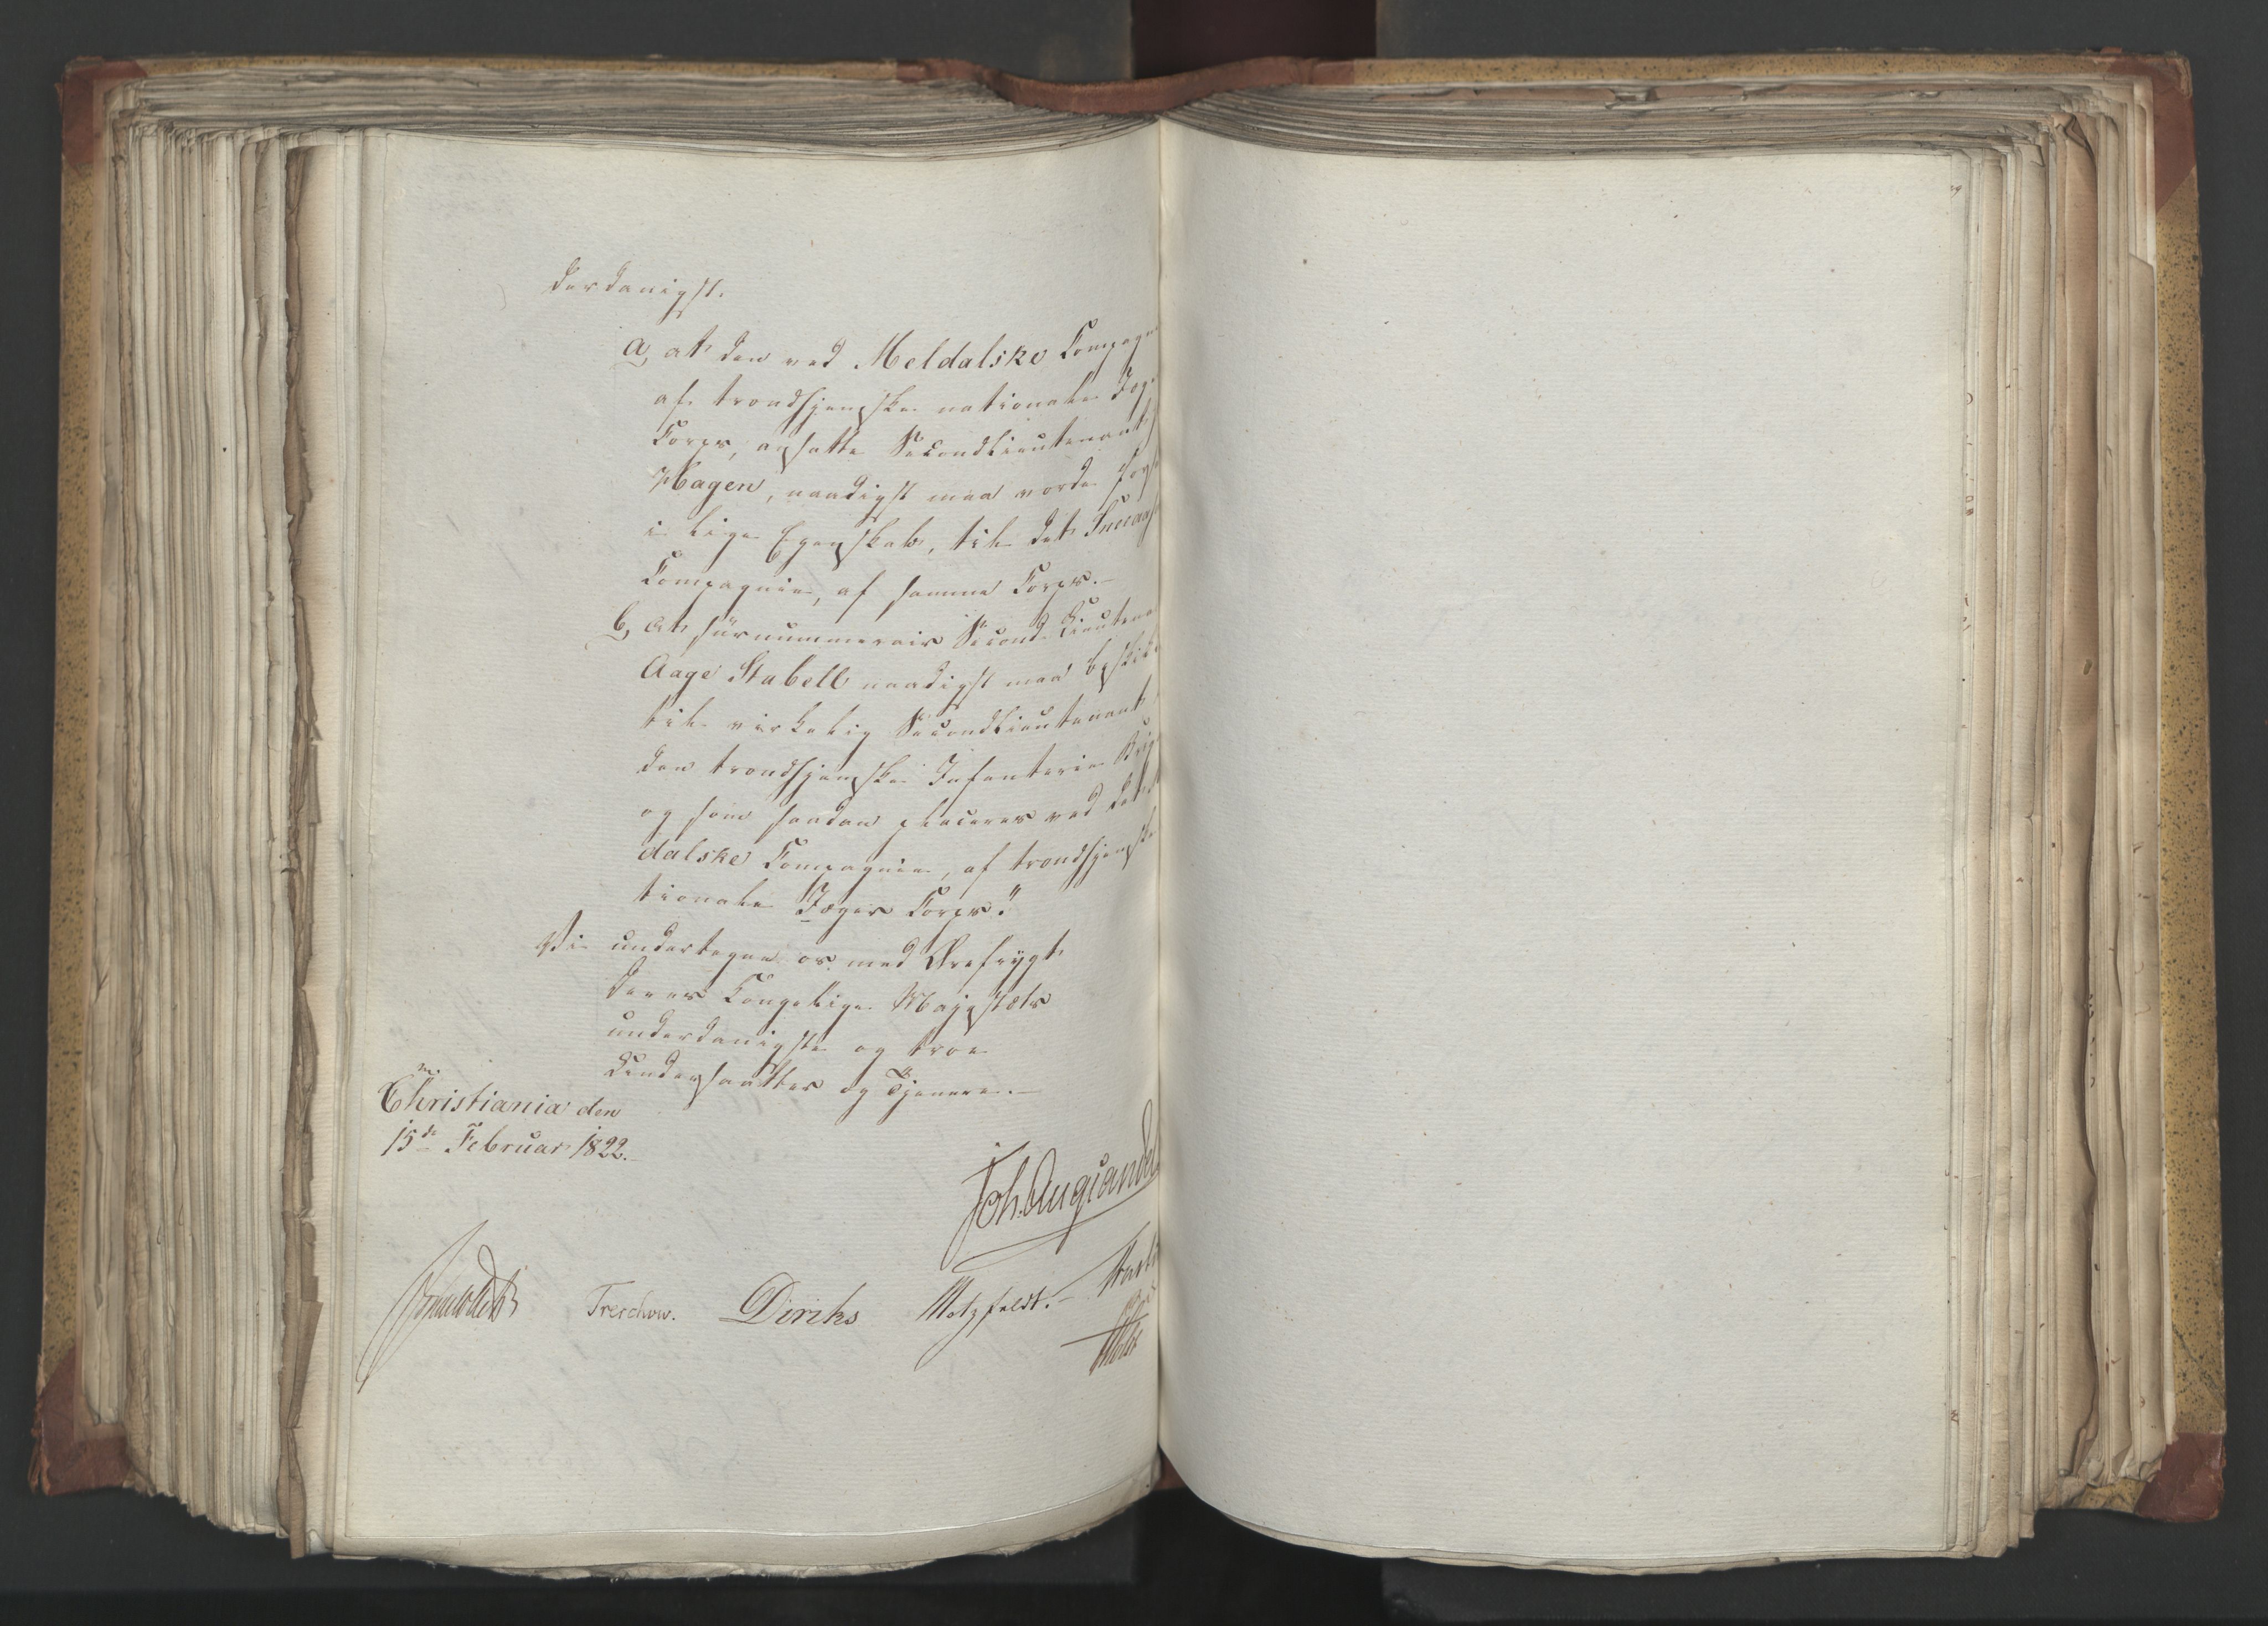 derdanigst.
a, at den ved Meldalske Compagn
af trondhjemske nationale Jæg
Corps, ansatte Secondlieutenant
Hagen, naadigst maa vorde fors
i lige Egenskab, til det Sneaas
Compagnie, af samme Corps.–
b, at surnummerair Second-Lieutena
Aage Stabell naadigst maa beskik
til virkelig Secondlieutenant
den trondhjemske Infanterie Brig
og som saadan placeres ved det
dalske Compagnie, af trondhjemske
tionale Jæger Corps."
Vi undertegne os med Ærefrygt
Deres Kongelige Majestæts
underdanigste og troe
Undersaatter og Tjenere.–
Christiania den
15de Februar 1822.
Joh. Aug Sandel
Treschow. Diriks Motzfeldt.
Holst